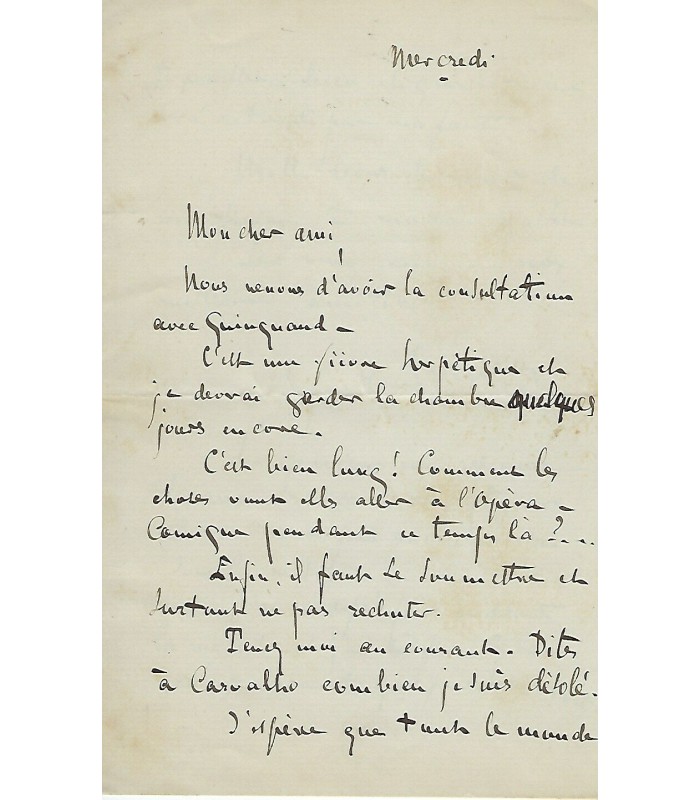 Mercredi
Mon cher ami,
Nous venons d'avoir la consultation
avec Quinquaud -
C'est une fièvre herpétique et
je devrai garder la chambre quelques
jours encore.
C'est bien long! Comment les
choses vont elles aller à l'Opéra-
Comique pendant ce temps là ?...
Enfin, il faut se soumettre et
surtout ne pas rechuter.
Tenez moi au courant. Dites
à Carvalho combien je suis désolé.
J'espère que tout le monde